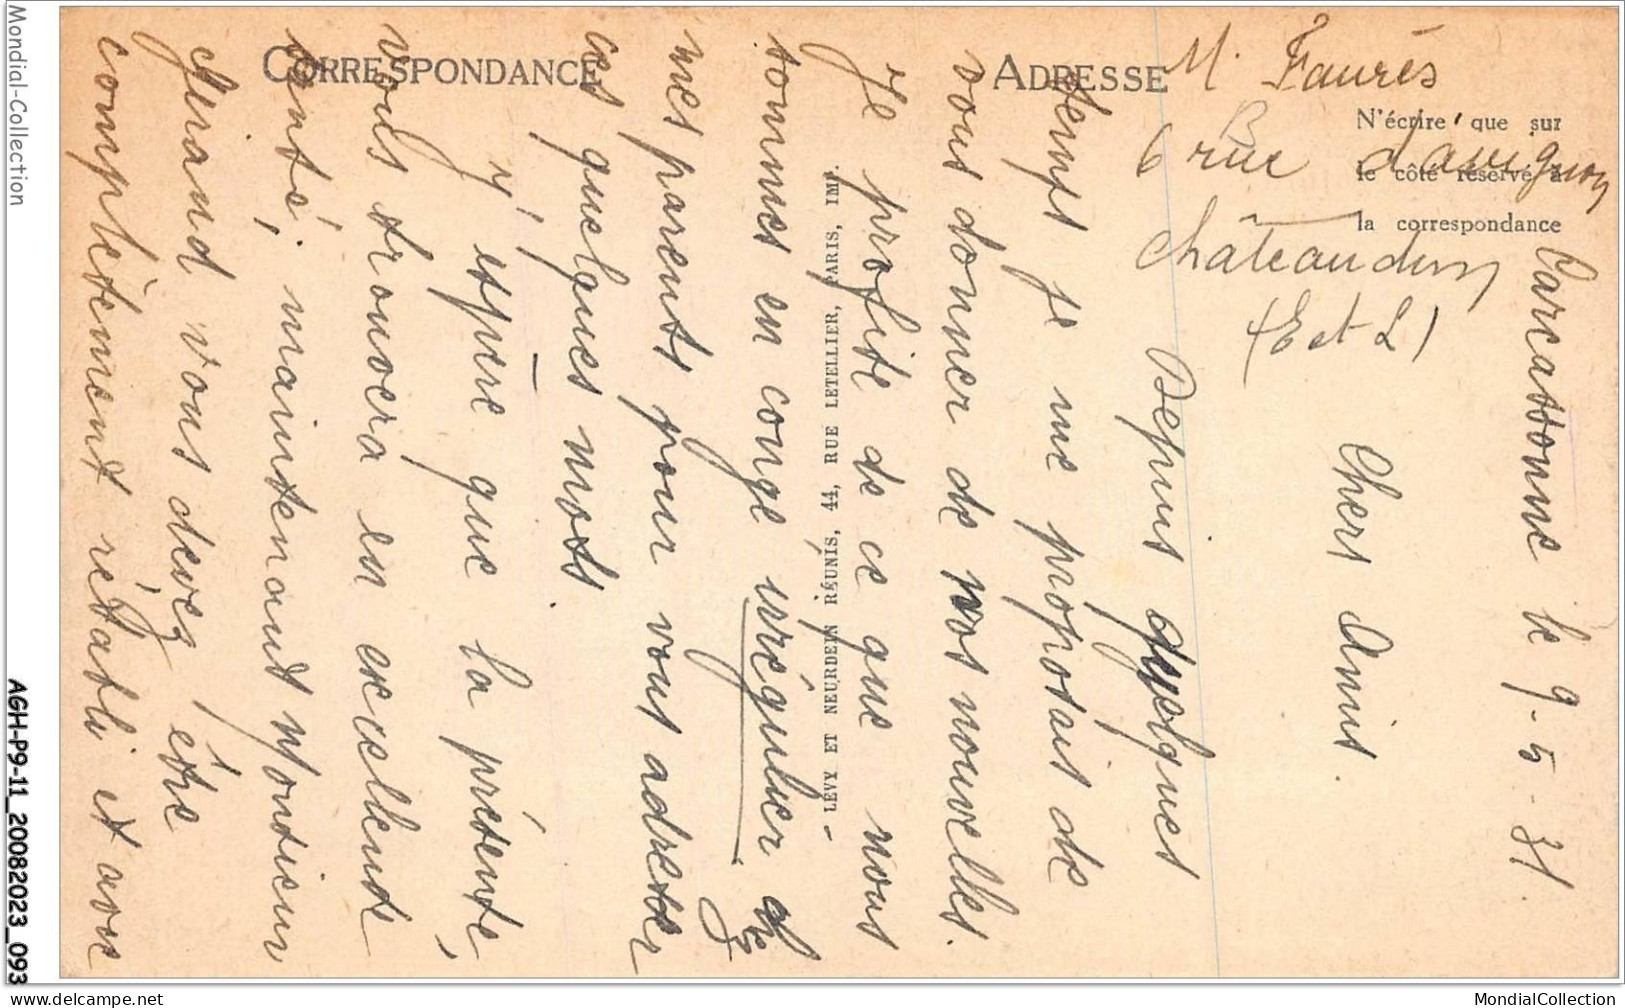 CORRESPONDANCE
ADRESSE
N'écrire que sur
le côté réservé à
la correspondance
M. Faurès
6 rue d'avignon
Châteaudun
(E et L)
Carcassonne le 9-5-31
Chers Amis.
Depuis quelques
temps je me proposais de
vous donner de vos nouvelles.
Je profite de ce que nous
sommes en congé irrégulier
mes parents pour vous adresser
ces quelques mots.
J'espère que la présente,
vous trouvera en excellente
santé; maintenant Monsieur
Jurand vous devez être
complètement rétabli et avoir
LÉVY ET NEURDEIN RÉUNIS, 44, RUE LETELLIER, PARIS, IMP.
Mondial-Collection
AGH-P9-11_20082023_093
https://www.delcampe.net/fr/collections/store/Mondial-Collection
MondialCollection